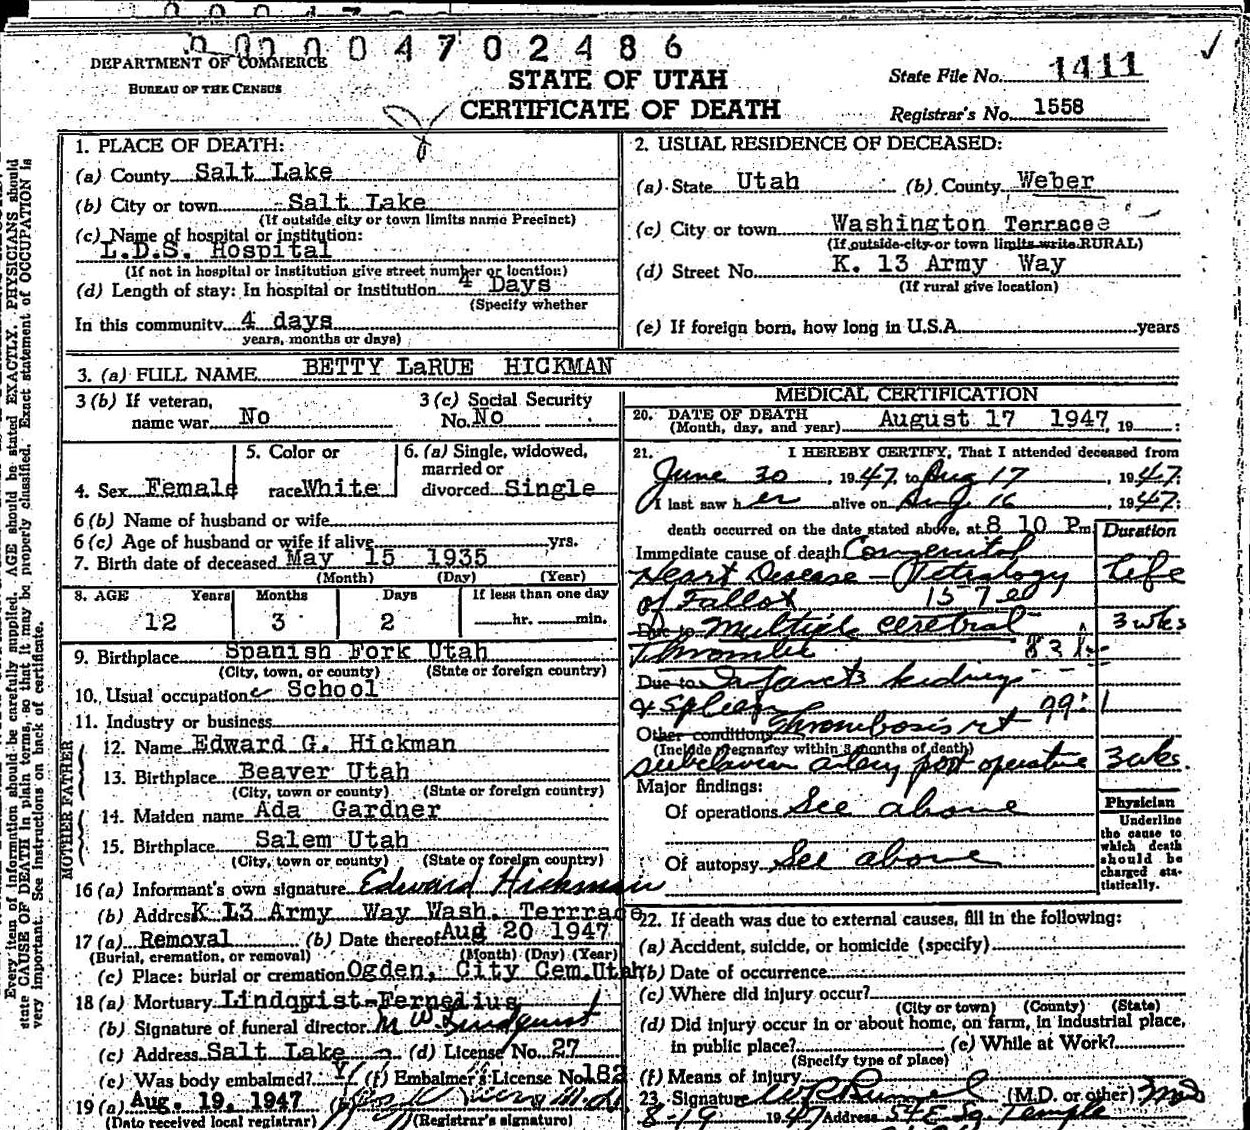 0000004702486
DEPARTMENT OF COMMERCE
BUREAU OF THE CENSUS
STATE OF UTAH
CERTIFICATE OF DEATH
State File No. 1411
Registrar's No. 1558
1. PLACE OF DEATH:
(a) County Salt Lake
(b) City or town Salt Lake
(If outside city or town limits name Precinct)
(c) Name of hospital or institution:
L.D.S. Hospital
(If not in hospital or institution give street number or location)
(d) Length of stay: In hospital or institution 4 Days
(Specify whether
In this community 4 days
years, months or days)
2. USUAL RESIDENCE OF DECEASED:
(a) State Utah (b) County Weber
(c) City or town Washington Terracee
(If outside city or town limits write RURAL)
(d) Street No. K. 13 Army Way
(If rural give location)
(e) If foreign born, how long in U.S.A. years
3. (a) FULL NAME BETTY LaRUE HICKMAN
3 (b) If veteran,
name war No
3 (c) Social Security
No. No
4. Sex Female
5. Color or
race White
6. (a) Single, widowed,
married or
divorced Single
6 (b) Name of husband or wife
6 (c) Age of husband or wife if alive yrs.
7. Birth date of deceased May 15 1935
(Month) (Day) (Year)
8. AGE Years Months Days If less than one day
12 3 2 hr. min.
9. Birthplace Spanish Fork Utah
(City, town, or county) (State or foreign country)
10. Usual occupation School
11. Industry or business
FATHER
12. Name Edward G. Hickman
13. Birthplace Beaver Utah
(City, town or county) (State or foreign country)
MOTHER
14. Maiden name Ada Gardner
15. Birthplace Salem Utah
(City, town or county) (State or foreign country)
16 (a) Informant's own signature Edward Hickman
(b) Address K 13 Army Way Wash. Terrrace
17 (a) Removal (b) Date thereof Aug 20 1947
(Burial, cremation, or removal) (Month) (Day) (Year)
(c) Place: burial or cremation Ogden, City Cem. Utah
18 (a) Mortuary Lindquist-Fernelius
(b) Signature of funeral director M W Lindquist
(c) Address Salt Lake (d) License No. 27
(e) Was body embalmed? Y (f) Embalmer's License No. 182
19 (a) Aug. 19, 1947 (b)
(Date received local registrar) (Registrar's signature)
MEDICAL CERTIFICATION
20. DATE OF DEATH
(Month, day, and year) August 17 1947, 19
21. I HEREBY CERTIFY, That I attended deceased from
June 30, 1947, to Aug 17, 1947
I last saw her alive on Aug 16, 1947
death occurred on the date stated above, at 8 10 Pm
Duration
Immediate cause of death Congenital
Heart Disease - (Tetralogy Life
of Fallot 157e
Due to Multiple cerebral 3 wks
Thrombi 83
Due to Infarcts kidney
& Spleen 99:1
Other conditions Thrombosis rt
(Include pregnancy within 3 months of death)
subclavian artery post operative 3 wks.
Major findings:
Of operations See above
Of autopsy See above
Physician
Underline
the cause to
which death
should be
charged sta-
tistically.
22. If death was due to external causes, fill in the following:
(a) Accident, suicide, or homicide (specify)
(b) Date of occurrence
(c) Where did injury occur?
(City or town) (County) (State)
(d) Did injury occur in or about home, on farm, in industrial place,
in public place? (e) While at Work?
(Specify type of place)
(f) Means of injury
23. Signature (M.D. or other) MD
8-19 1947 Address 54 E. So. Temple
Every item of information should be carefully supplied. AGE should be stated EXACTLY. PHYSICIANS should
state CAUSE OF DEATH in plain terms, so that it may be properly classified. Exact statement of OCCUPATION is
very important. See instructions on back of certificate.